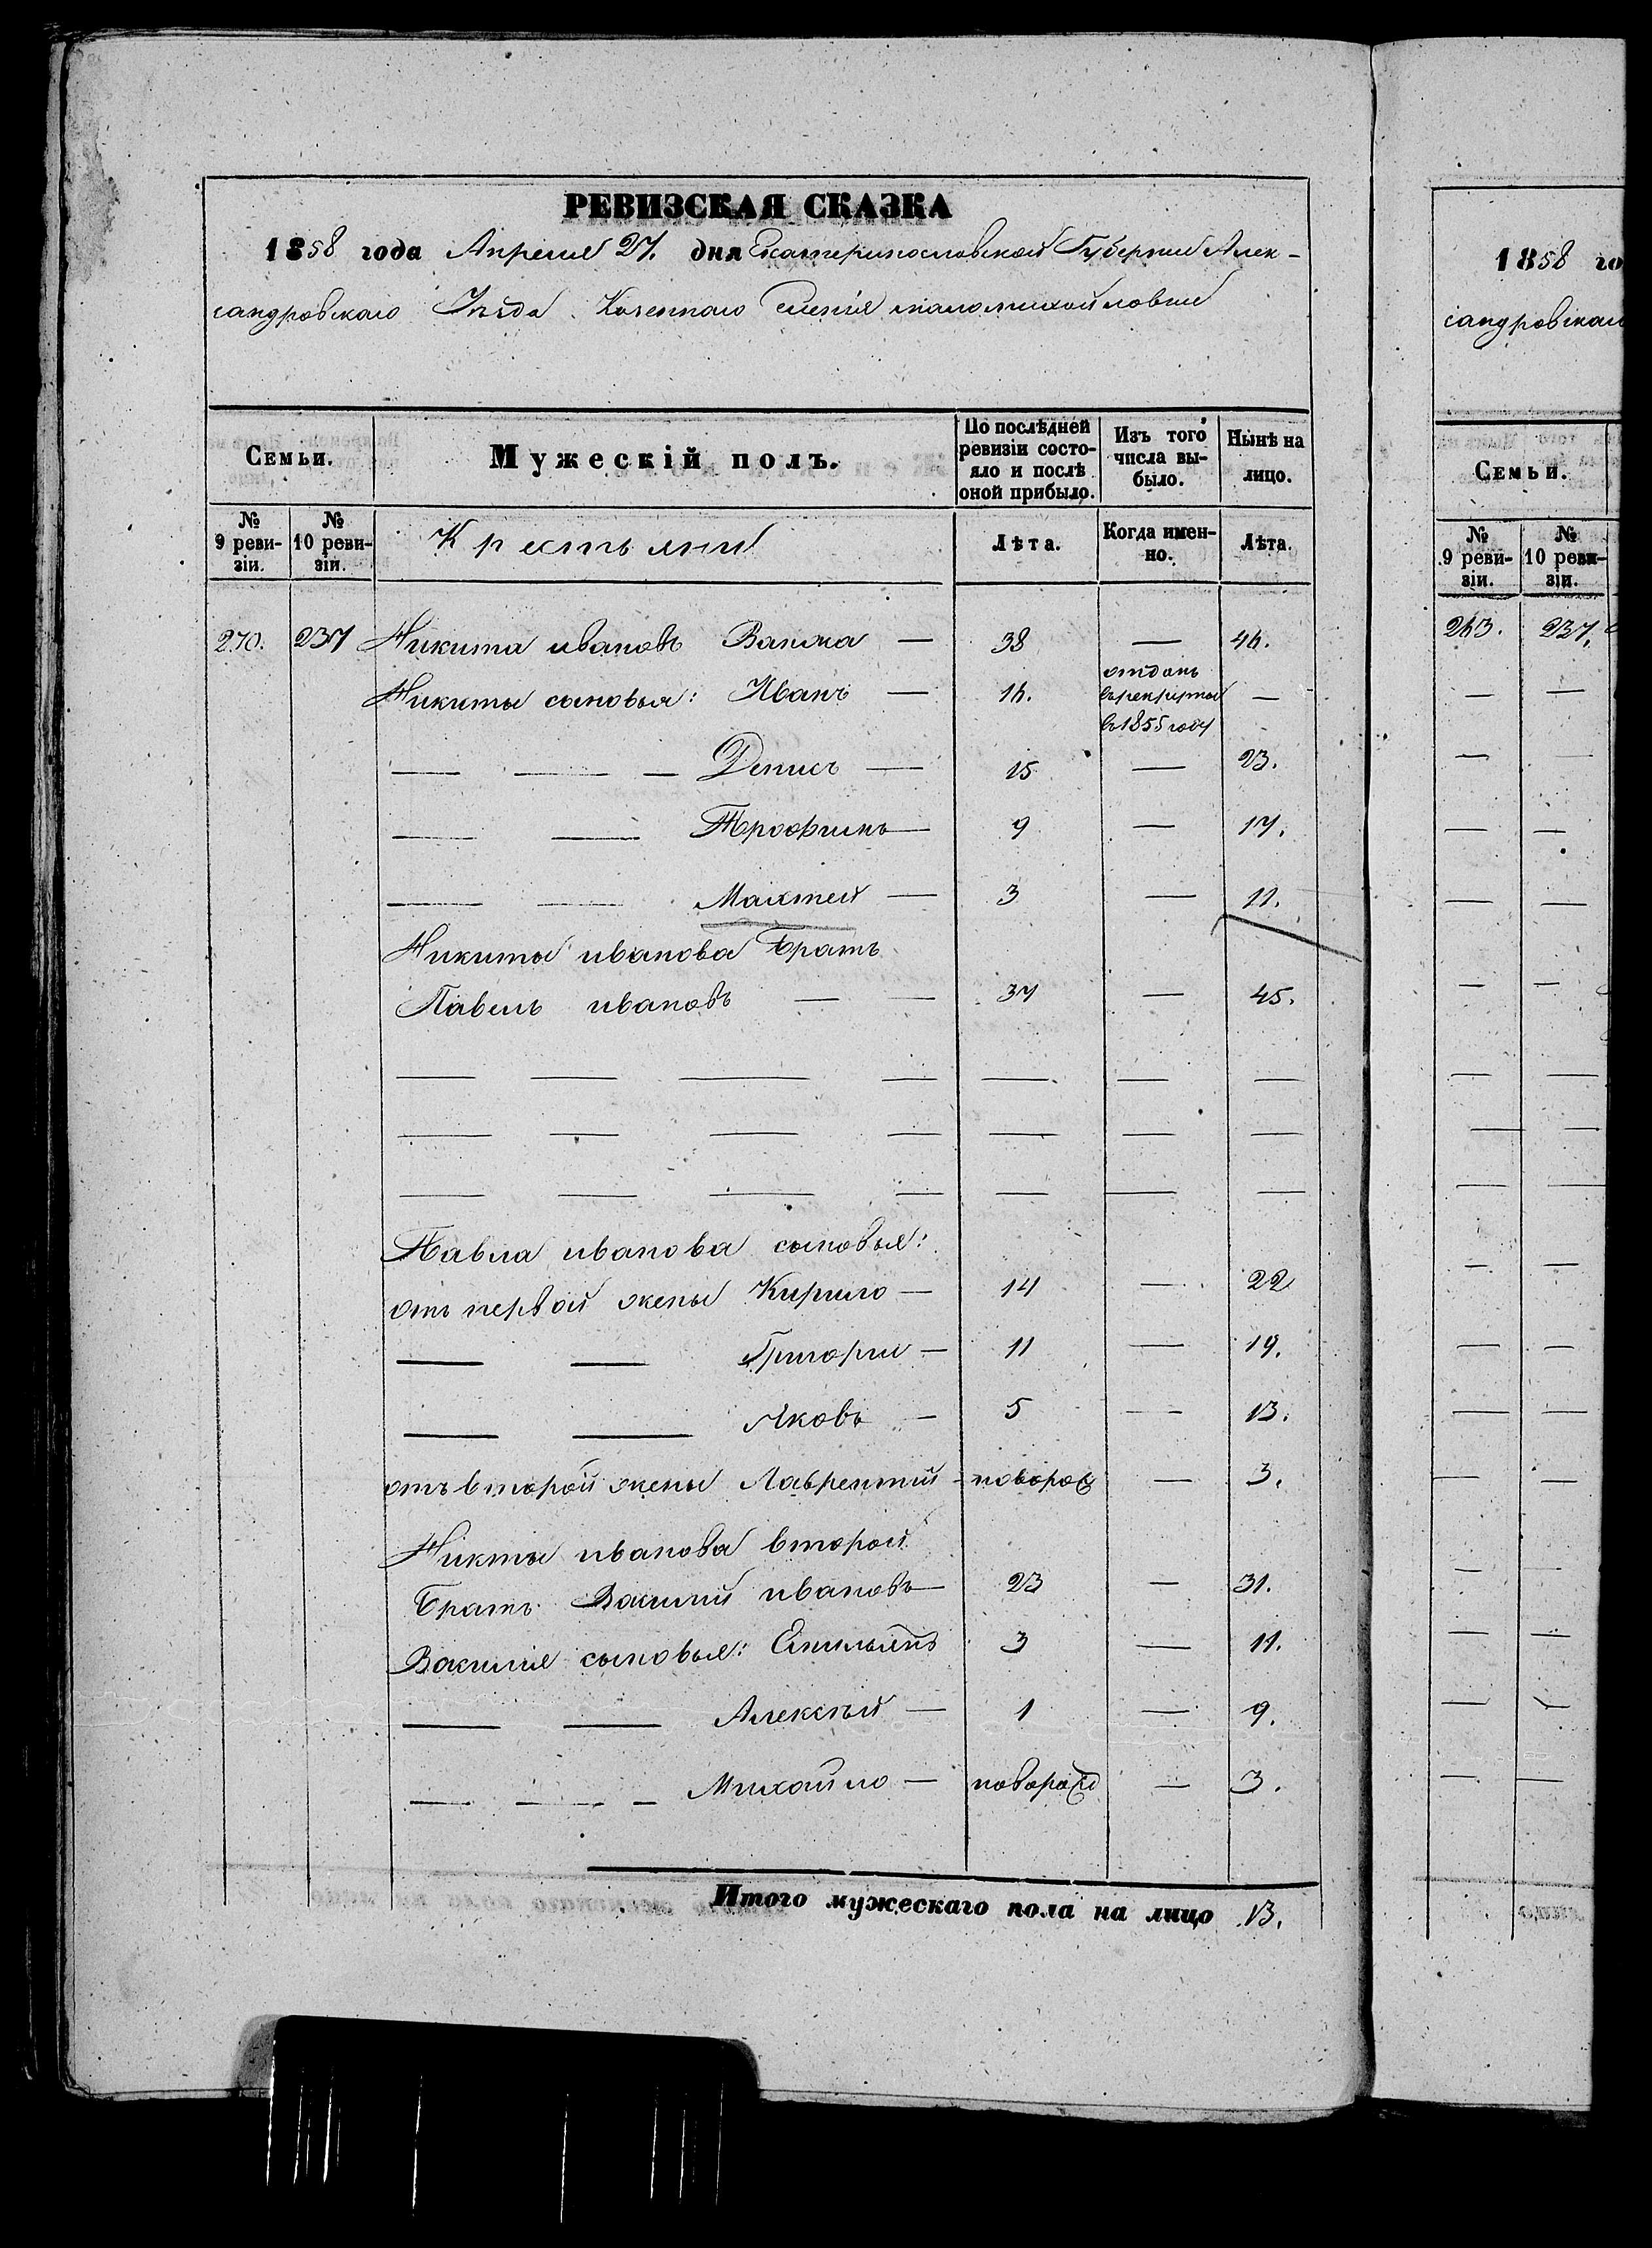 РЕВИЗСКАЯ СКАЗКА
1858 года Апреля 27. дня Екатеринославской Губернии Алек-
сандровскаго Уѣзда Казеннаго Селенія маломихайловки
Семьи.
Мужескій полъ.
По послѣдней ревизіи состо-яло и послѣ оной прибыло.
Изъ того числа вы-было.
Нынѣ на лицо.
№ 9 реви-зіи.
№ 10 реви-зіи.
Крестьяни
Лѣта.
Когда имен-но.
Лѣта.
270. 237 Никита ивановъ — 38 — 46.
Никиты сыновья: Иванъ — 16. отданъ врекруты в1855 году —
— — — Денисъ — 15 — 23.
— — Трофимъ — 9 — 17.
— — Махтей — 3 — 11.
Никиты иванова Братъ
Павелъ ивановъ — — 37 — 45.
— — — — — — —
— — — — — — —
— — — — — — —
Павла иванова сыновья:
отъ первой жены Кирило — 14 — 22
— — Григори — 11 — 19.
— — Яковъ — 5 — 13.
отъ второй жены Лаврентий - новорож — 3.
Никты иванова второй
Братъ Василий ивановъ — 23 — 31.
Василия сыновья: Емильянъ 3 — 11.
— — Алексѣй — 1 — 9.
— — — Михайло — новорожд — 3.
Итого мужескаго пола на лицо 13.
1858 го
сандровскаго
Семьи.
№ 9 реви-зіи.
№ 10 реви-зіи.
263. 237.